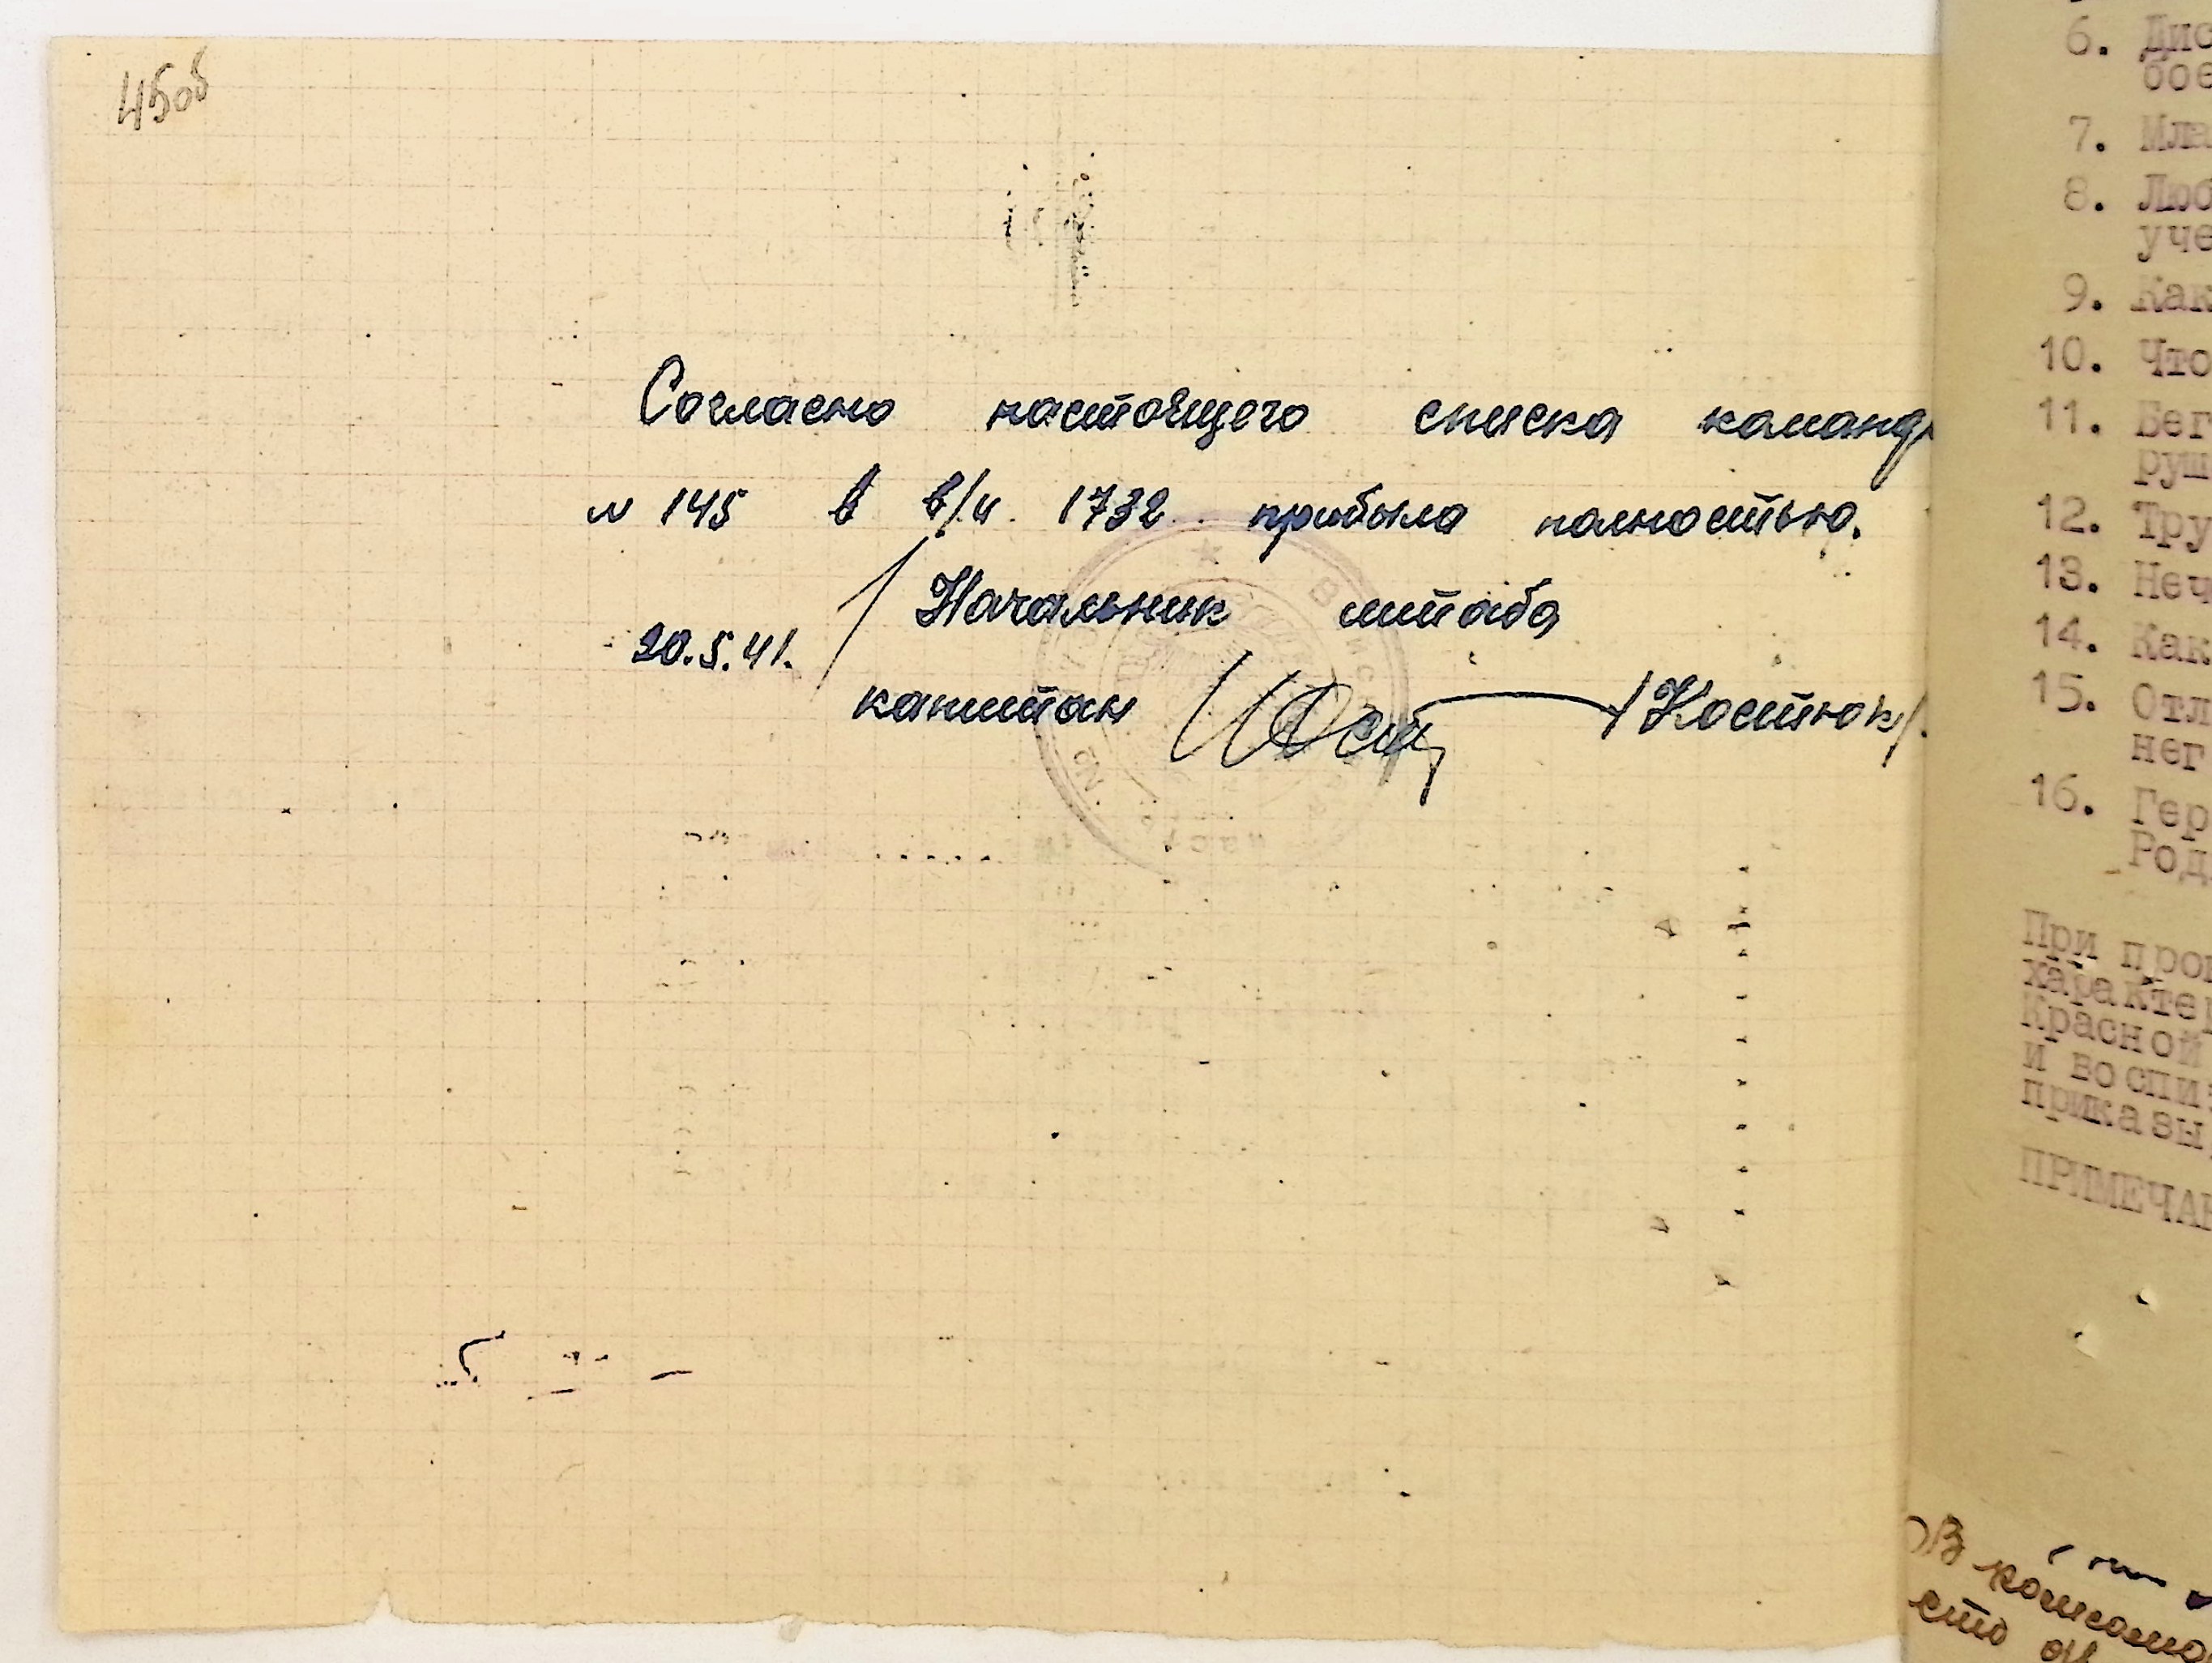 45об
Согласно настоящего списка команд
N 145 в в/ч. 1732 прибыла полностью.
Начальник штаба
20.5.41.
капитан /Костюк/.
6. Дис
бое
7. Мла
8. Люб
уче
9. Как
10. Что
11. Бег
руш
12. Тру
13. Неч
14. Как
15. Отл
нег
16. Гер
Род
При про
характер
Красной
и воспи
приказы
ПРИМЕЧАН